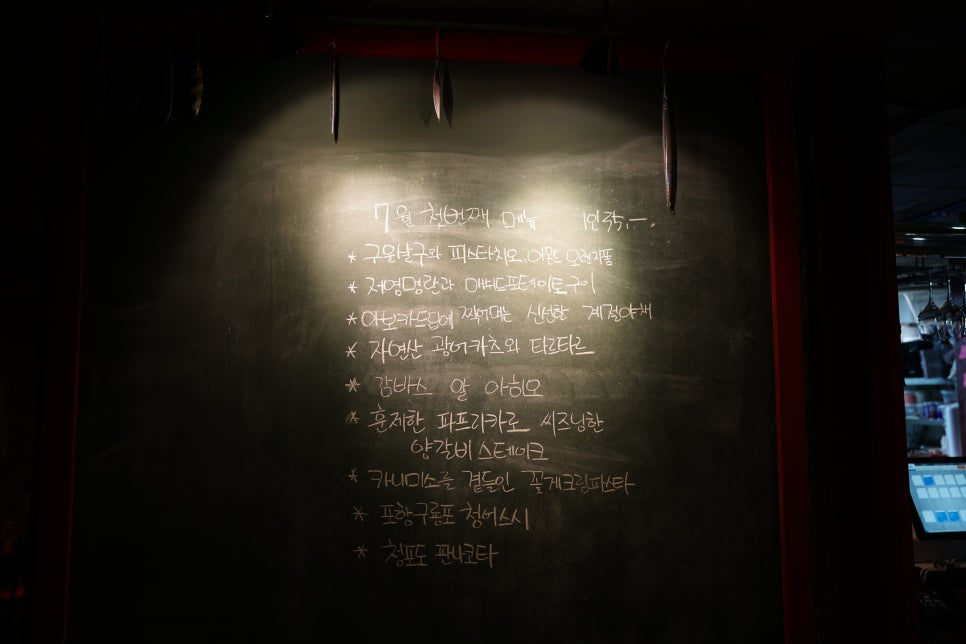 7월 첫번째 메뉴
* 구운살구와 피스타치오, 아몬드 오렌지퐁
* 저염명란과 매쉬드포테이토구이
* 아보카도딥에 찍어먹는 신선한 계절야채
* 자연산 광어카츠와 타르타르
* 감바스 알 아히오
* 훈제한 파프리카로 씨즈닝한
양갈비스테이크
* 카니미소를 곁들인 꽃게크림파스타
* 포항구룡포 청어스시
* 청포도 판나코타